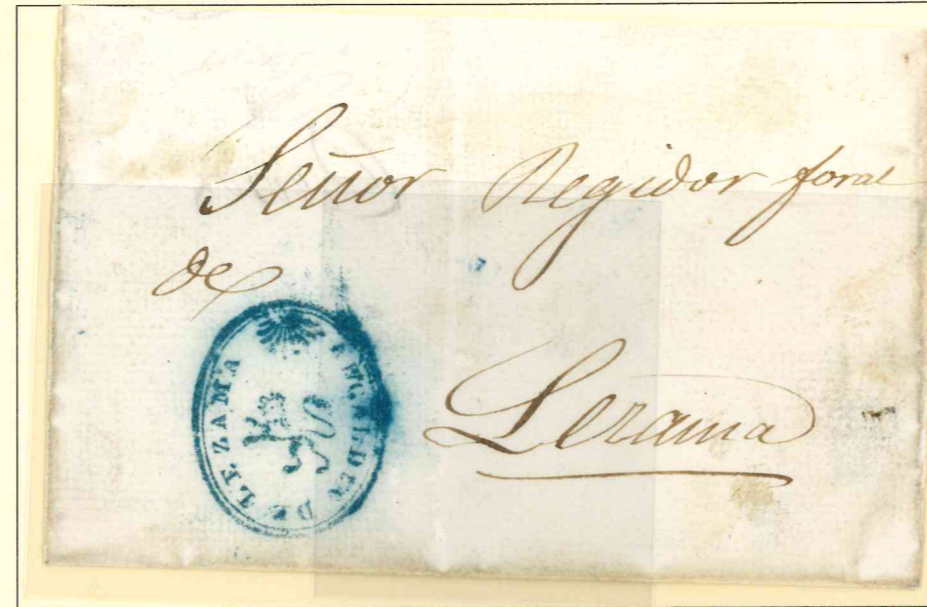 Señor Regidor foral
de
Lezama
DE LEZAMA